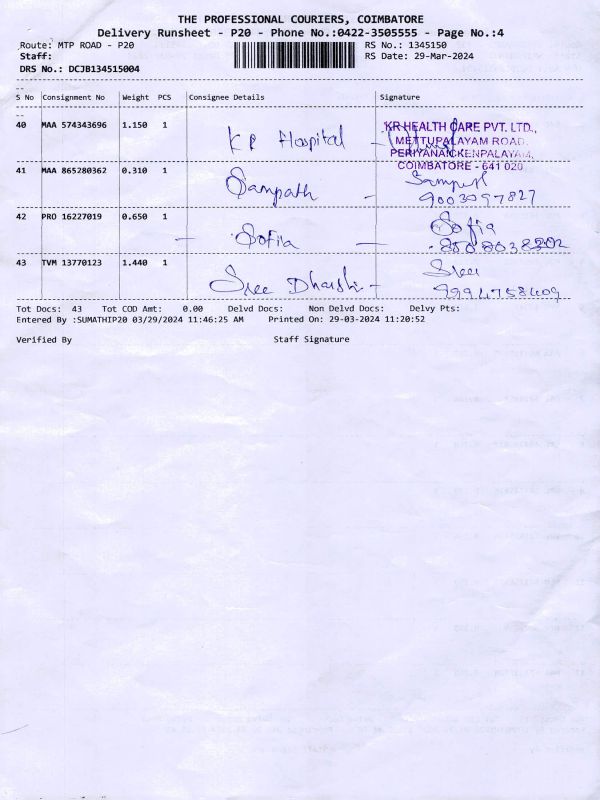 THE PROFESSIONAL COURIERS, COIMBATORE
Delivery Runsheet - P20 - Phone No.:0422-3505555 - Page No.:4
Route: MTP ROAD - P20 RS No.: 1345150
Staff: RS Date: 29-Mar-2024
DRS No.: DCJB134515004
S No Consignment No Weight PCS Consignee Details Signature
40 MAA 574343696 1.150 1 KR Hospital -
KR HEALTH CARE PVT. LTD.,
METTUPALAYAM ROAD,
PERIYANAICKENPALAYAM,
COIMBATORE - 641 020
41 MAA 865280362 0.310 1 Sampath - Sampath
9003097827
42 PRO 16227019 0.650 1 - Sofila - Sofia
43 TVM 13770123 1.440 1 Sree Dharshi - Sree
9994758409
Tot Docs: 43 Tot COD Amt: 0.00 Delvd Docs: Non Delvd Docs: Delvy Pts:
Entered By :SUMATHIP20 03/29/2024 11:46:25 AM Printed On: 29-03-2024 11:20:52
Verified By Staff Signature